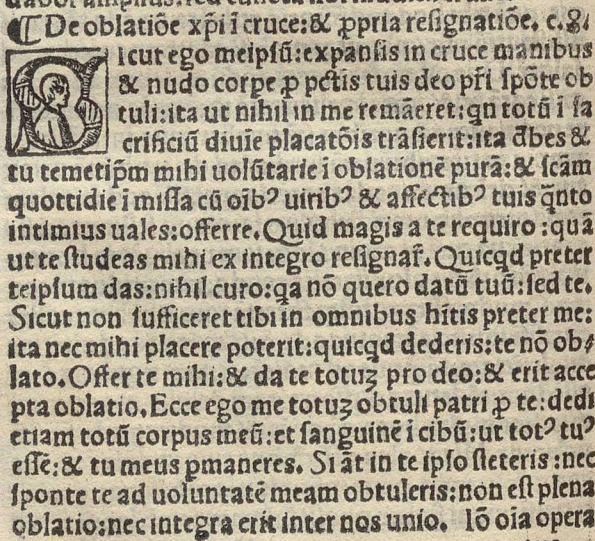 ⁌ De oblatiõe xp̄i ĩ cruce:& ꝓpria resignatiõe. c. 8.
Sicut ego meipsũ:expansis in cruce manibus
& nudo corpe ꝓ pctis tuis deo pr̃i spõte ob
tuli:ita ut nihil in me remãeret:qn totũ ĩ sa
crificiũ diuie placatõis trãsierit:ita d̃bes &
tu temetip̃m mihi uolũtarie ĩ oblationẽ purã:& scãm
quottidie ĩ missa cũ oĩbꝰ uiribꝰ & affectibꝰ tuis q̃nto
intimius uales:offerre. Quid magis a te requiro:quã
ut te studeas mihi ex integro resignar̃. Quicqd preter
teipsum das:nihil curo:qa nõ quero datũ tuũ:sed te.
Sicut non sufficeret tibi in omnibus hĩtis preter me:
ita nec mihi placere poterit:quicqd dederis:te nõ ob⸗
lato. Offer te mihi:& da te totuȝ pro deo:& erit acce
pta oblatio. Ecce ego me totuȝ obtuli patri ꝓ te:dedi
etiam totũ corpus meũ:et sanguinẽ ĩ cibũ:ut totꝰ tuꝰ
essẽ:& tu meus pmaneres. Si ãt in te ipso steteris:nec
sponte te ad uoluntatẽ meam obtuleris:non est plena
oblatio:nec integra erit inter nos unio. Iõ oĩa opera